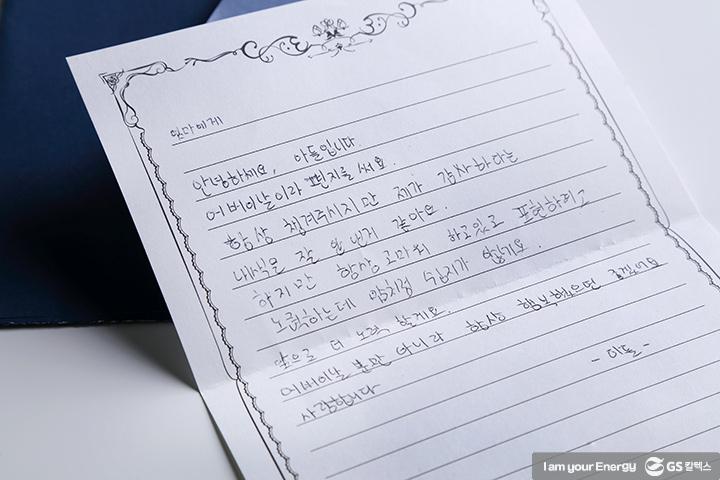 엄마에게
안녕하세요, 아들입니다.
어버이날이라 편지를 써요.
항상 챙겨주시지만 제가 감사하다는
내색을 잘 안 낸거 같아요.
하지만 항상 고마워 하고있고 표현하려고
노력하는데 맘처럼 쉽지가 않네요.
앞으로 더 노력 할게요.
어버이날 뿐만 아니라 항상 행복했으면 좋겠어요
사랑합니다
- 아들 -
I am your Energy GS칼텍스